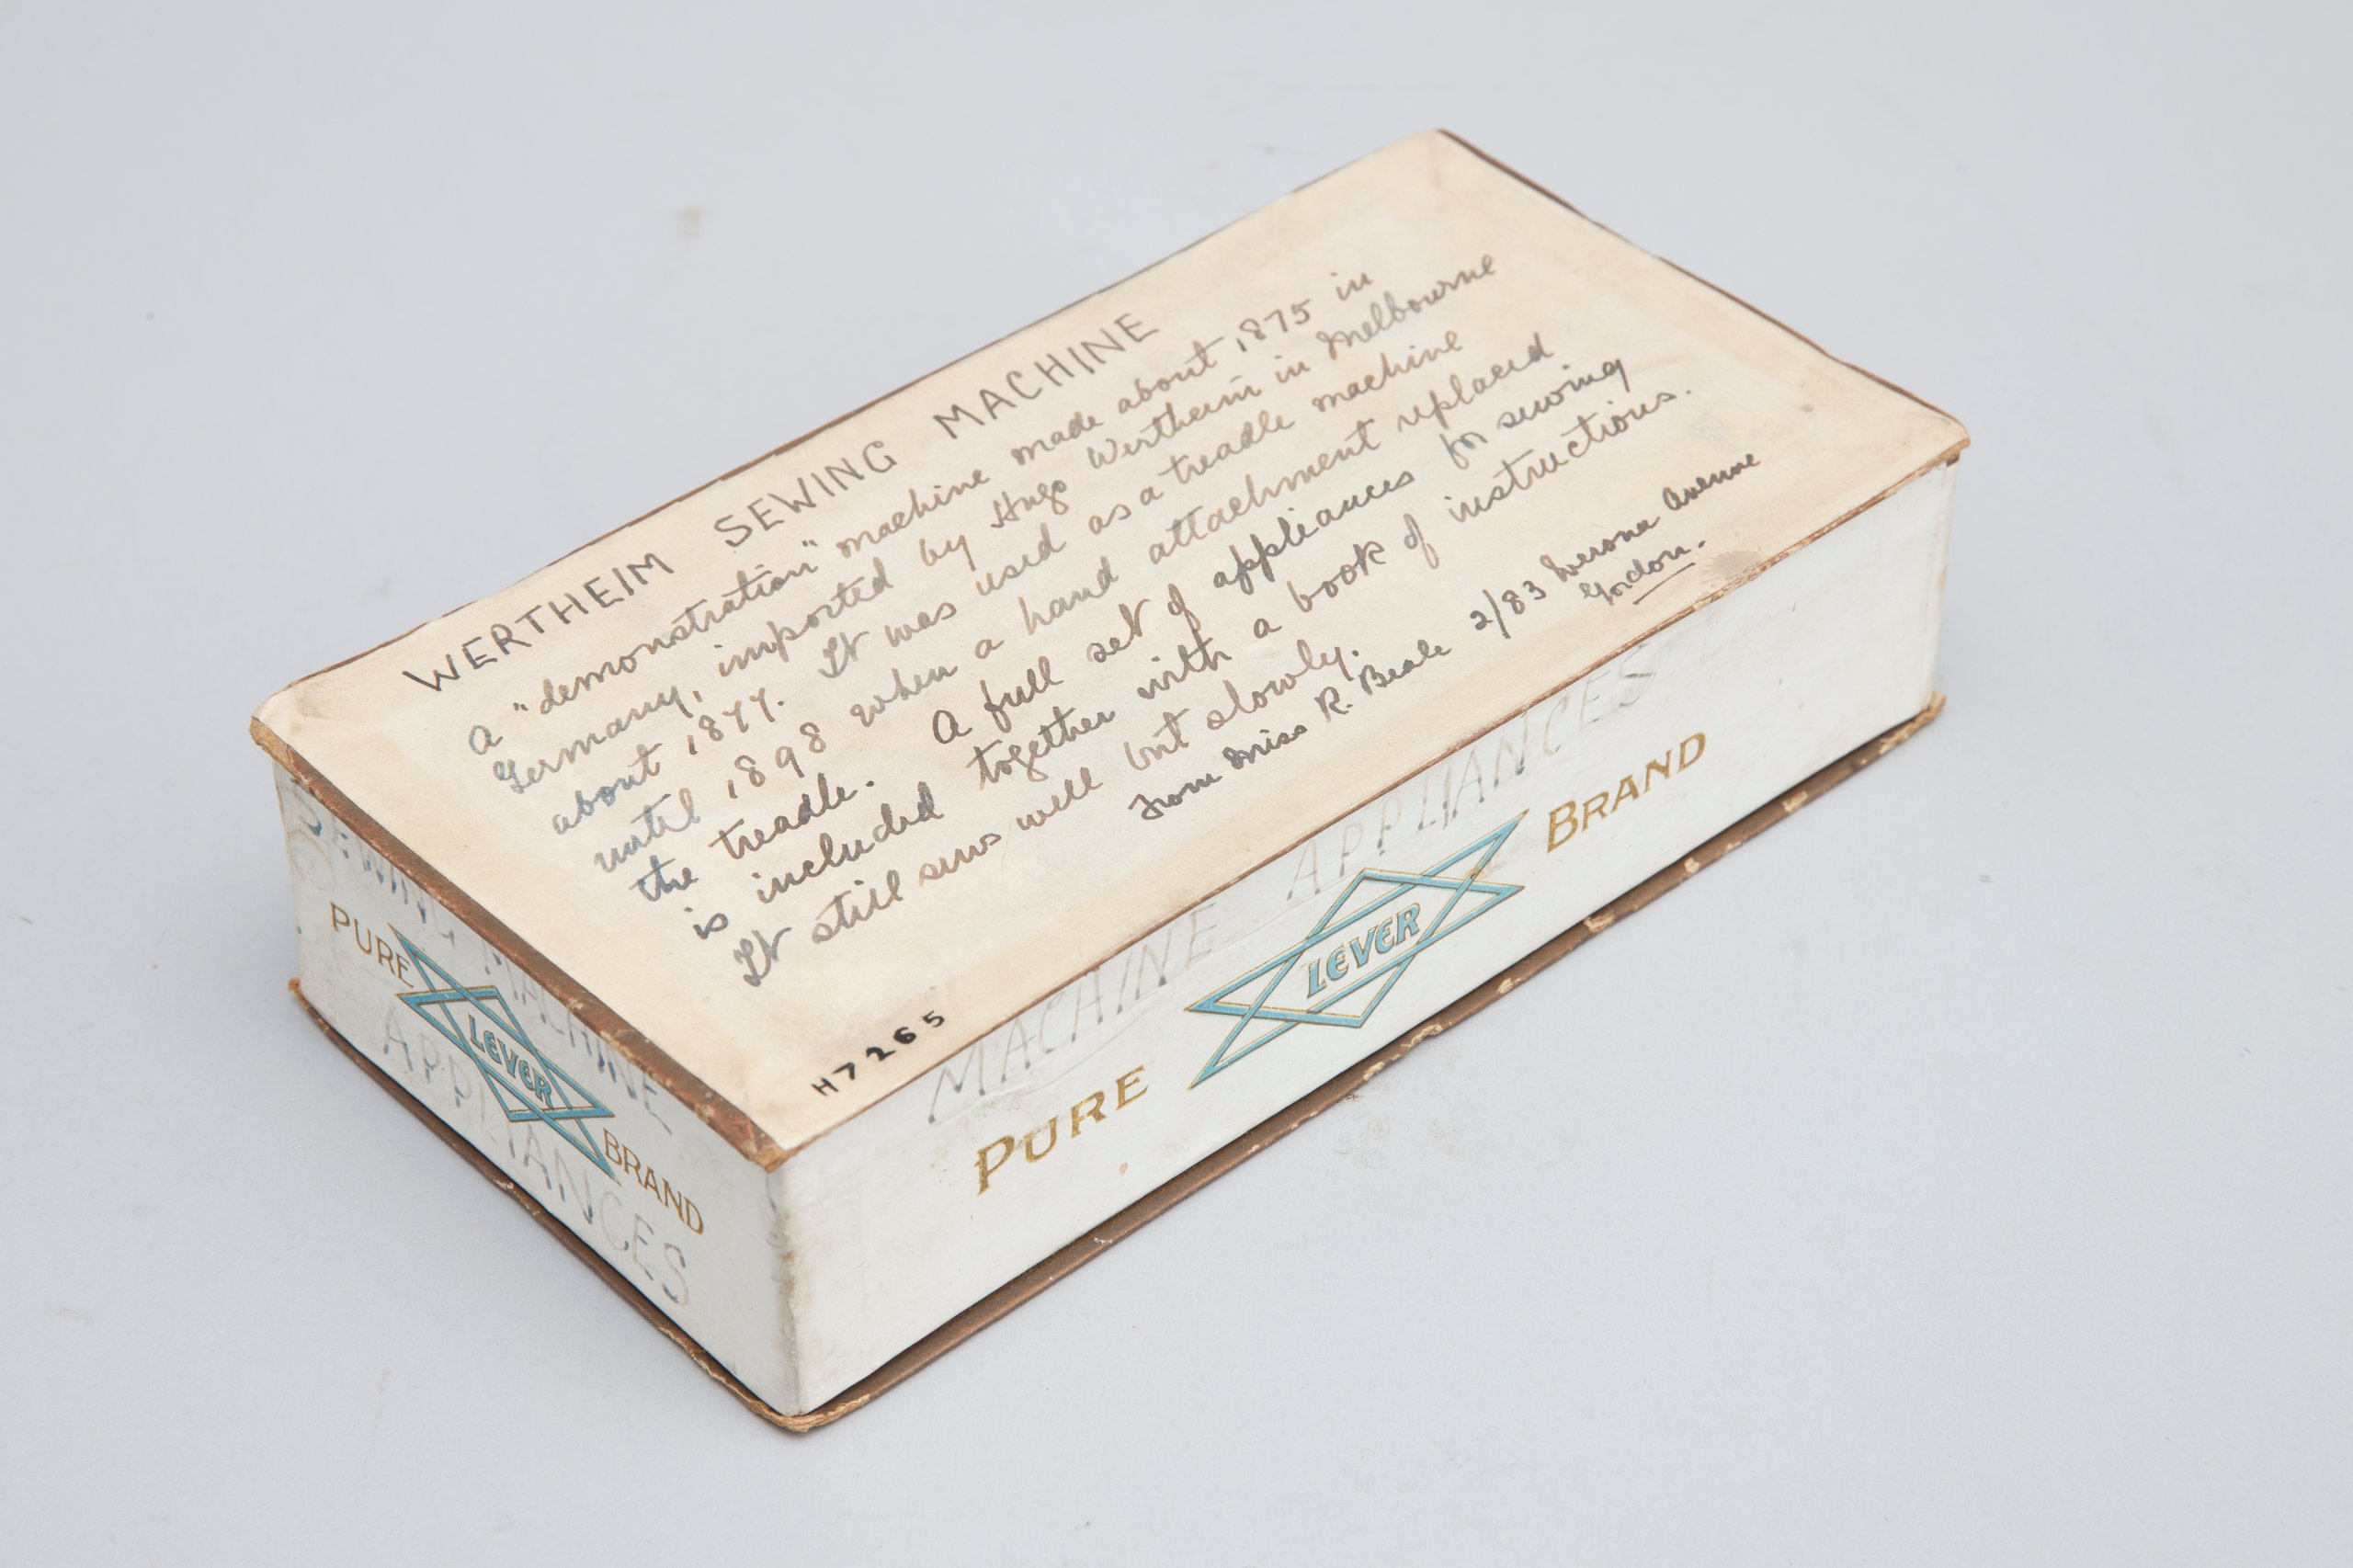 WERTHEIM SEWING MACHINE
A "demonstration" machine made about 1875 in
Germany, imported by Hugo Wertheim in Melbourne
about 1877. It was used as a treadle machine
until 1898 when a hand attachment replaced
the treadle. A full set of appliances for sewing
is included together with a book of instructions.
It still sews well but slowly.
From Miss R. Beale 2/83 Werona Avenue
Gordon.
H7265
SEWING MACHINE
APPLIANCES
PURE LEVER BRAND
MACHINE APPLIANCES
PURE LEVER BRAND